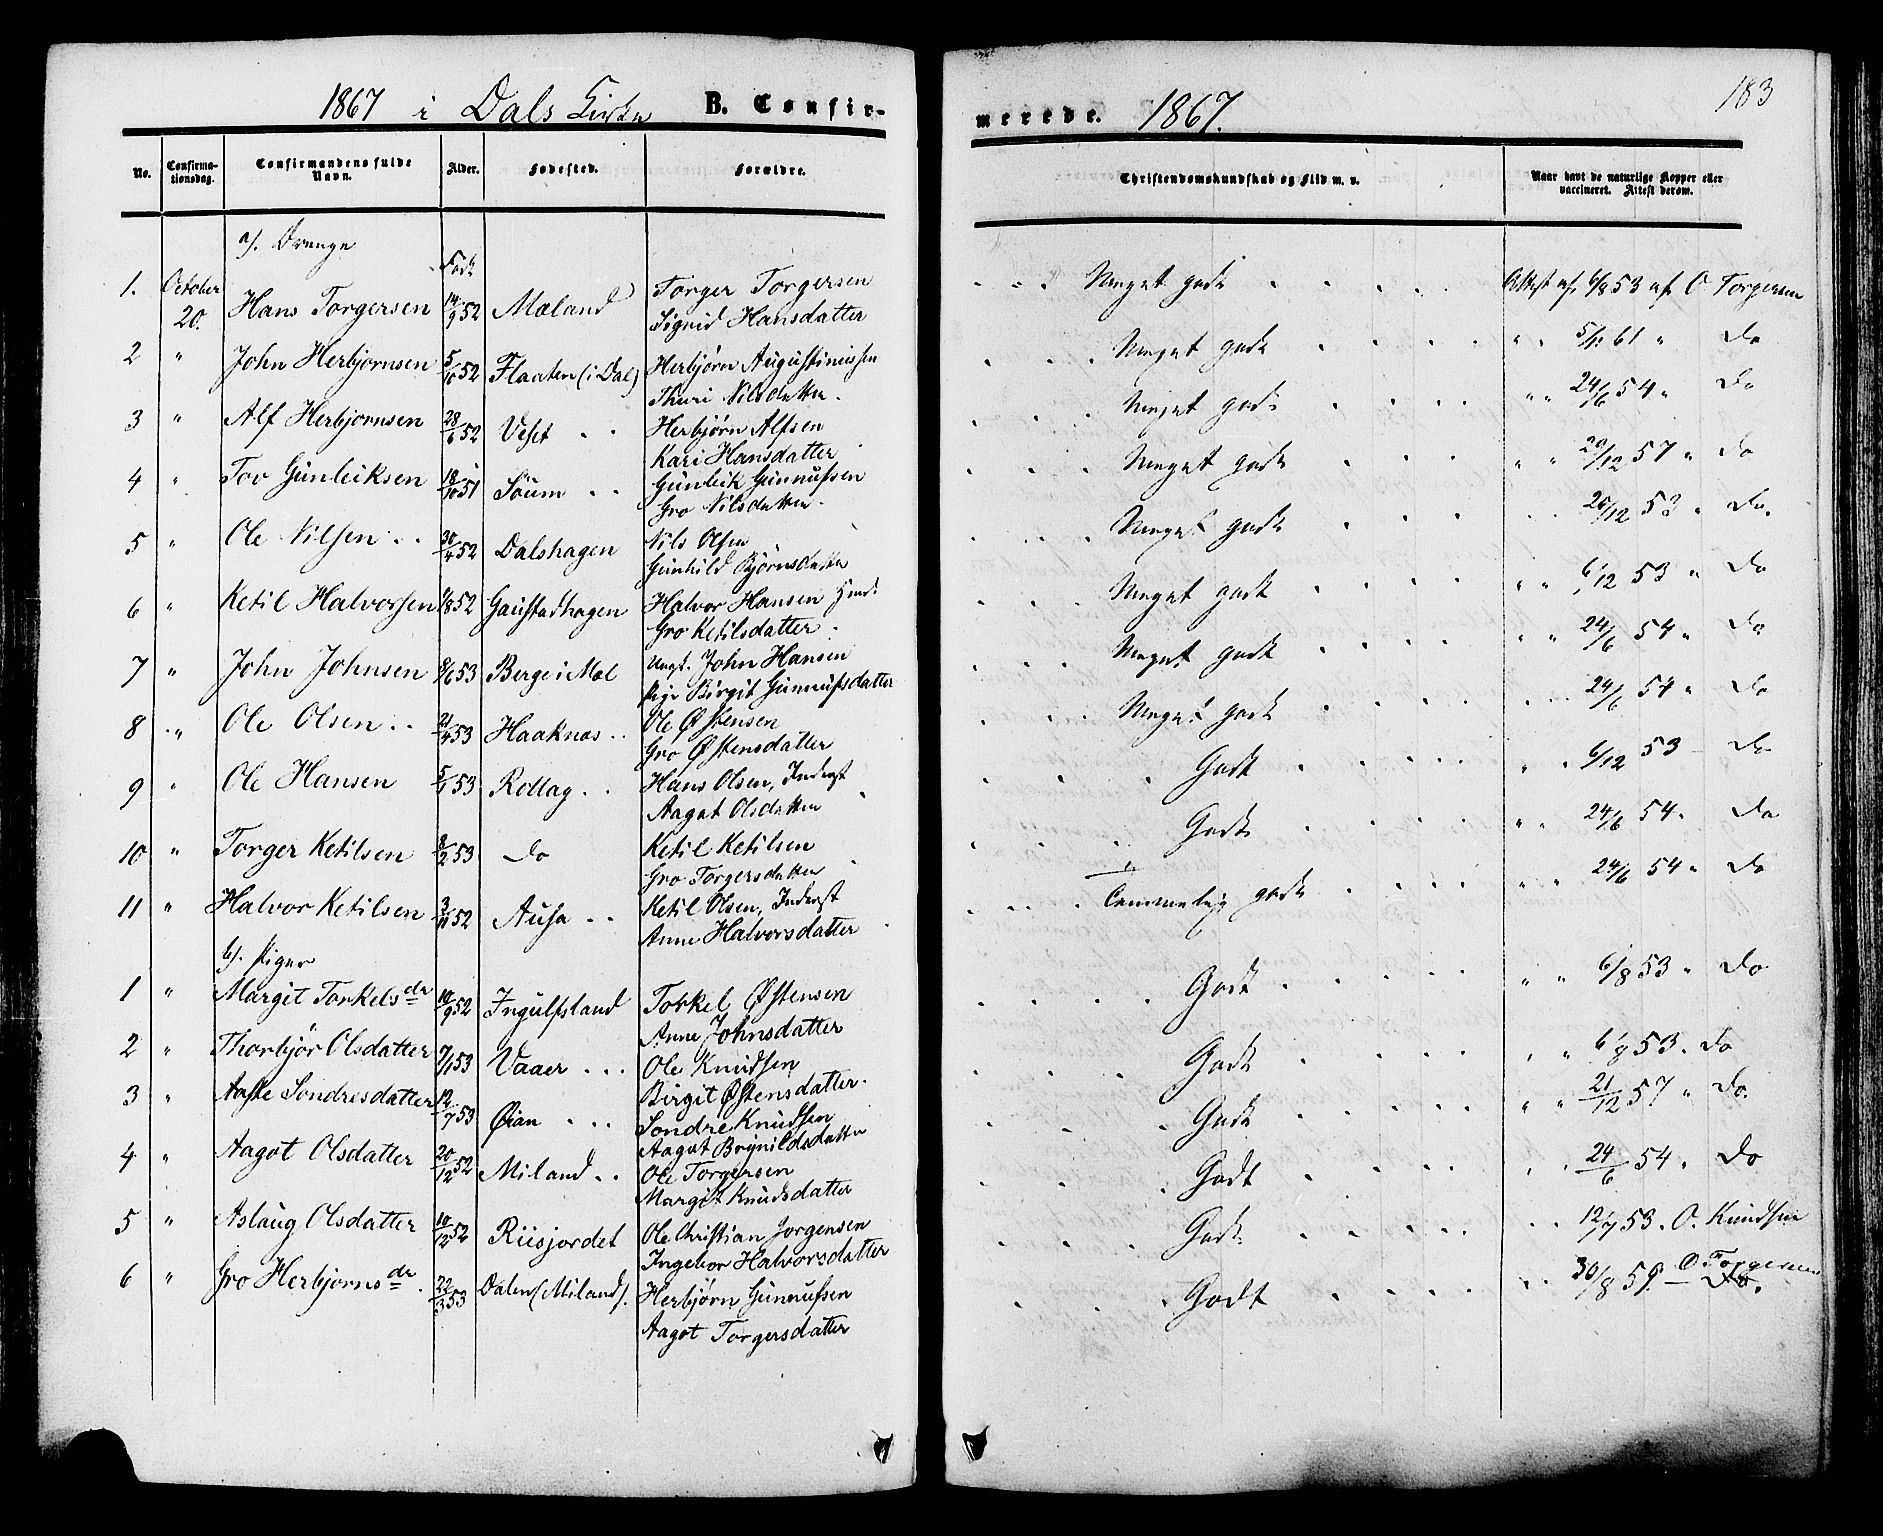 1867 i Dals Kirke B. Confirmerede. 1867. 183
No. Confirmationsdag. Confirmandens fulde Navn. Alder. Fødested. Forældre. Christendomskundskab og Flid m. v. Naar havt de naturlige Kopper eller vaccineret. Attest derom.
a). Drenge
Født
1. October 20. Hans Torgersen 14/9 52 Mæland Torger Torgersen Meget godt Attest af 6/8 53 af O Torgersen
Sigrid Hansdatter
2 " John Herbjørnsen 5/10 52 Flaaten (i Dal) Herbjørn Augustinussen Meget godt " " 61 " Do
Thuri Nilsdatter.
3 " Alf Herbjørnsen 28/6 52 Veset Herbjørn Alfsen Meget godt " " 24/6 54 " Do
Kari Hansdatter
4 " Tov Gunleiksen 18/10 51 Søum Gunleik Gunnufsen Meget godt " " 57 " Do
Gro Nilsdatter.
5 " Ole Nilsen 30/4 52 Dalshagen Nils Olsen Meget godt 53 " Do.
Gunhild Bjørnsdatter
6 " Ketil Halvorsen 52 Gaustadhagen Halvor Hansen Meget godt " " 6/12 53 " Do
Gro Ketilsdatter.
7 " John Johnsen 8/6 53 Berge i Mæl Ungk. John Hansen Meget godt " " 24/6 54 " Do
Pige Birgit Gunnufsdatter
8 " Ole Olsen 21/4 53 Haaknæs Ole Østensen Meget godt 24/6 54 " Do
Gro Østensdatter
9 " Ole Hansen 53 Rollag Hans Olsen, Inderst Godt " " 6/12 53 Do
Aagot Olsdatter
10 " Torger Ketilsen 8/2 53 Do Ketil Ketilsen Godt " " 24/6 54 " Do
Gro Torgersdatter
11 " Halvor Ketilsen 3/11 52 Ausa Ketil Olsen, Inderst Temmelig godt " " 24/6 54 " Do
Anne Halvorsdatter
b). Piger
1 " Margit Torkelsdr 10/9 52 Ingulfsland Torkel Østensen Godt " " 6/8 53 " Do
Anne Johnsdatter
2 " Thorbjør Olsdatter 7/1 53 Vaaer Ole Knudsen Godt " " 6/8 53 " Do
Birgit Østensdatter.
3 " Aaste Søndresdatter 12/7 53 Øian Søndre Knudsen Godt " " 21/12 57 " Do.
Aagot Brynildsdatter
4 " Aagot Olsdatter 20/12 52 Miland Ole Torgersen Godt " " 24/6 54 " Do
Margit Knudsdatter
5 " Aslaug Olsdatter 10/12 52 Riisjordet Ole Christian Jorgensen Godt " " 12/7 53. O. Knudsen
Ingebor Halvorsdatter
6 " Gro Herbjørnsdr. 22/3 53 Dalen (Miland). Herbjørn Gunnufsen Godt " " 30/8 59. O Torgersen
Aagot Torgersdatter